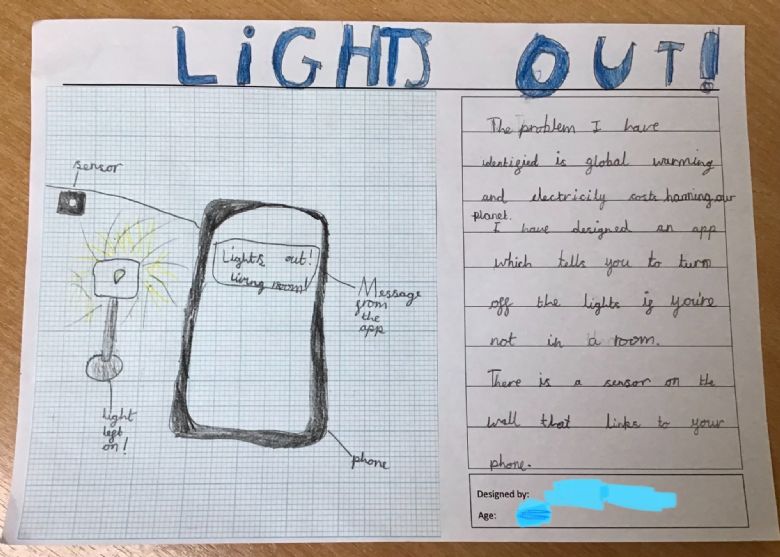 LiGHTS OUT!
sensor
Lights out!
living room!
Message
from
the
app
light
left
on!
phone
The problem I have
identified is global warming
and electricity costs harming our
planet.
I have designed an app
which tells you to turn
off the lights if you're
not in a room.
There is a sensor on the
wall that links to your
phone.
Designed by:
Age: